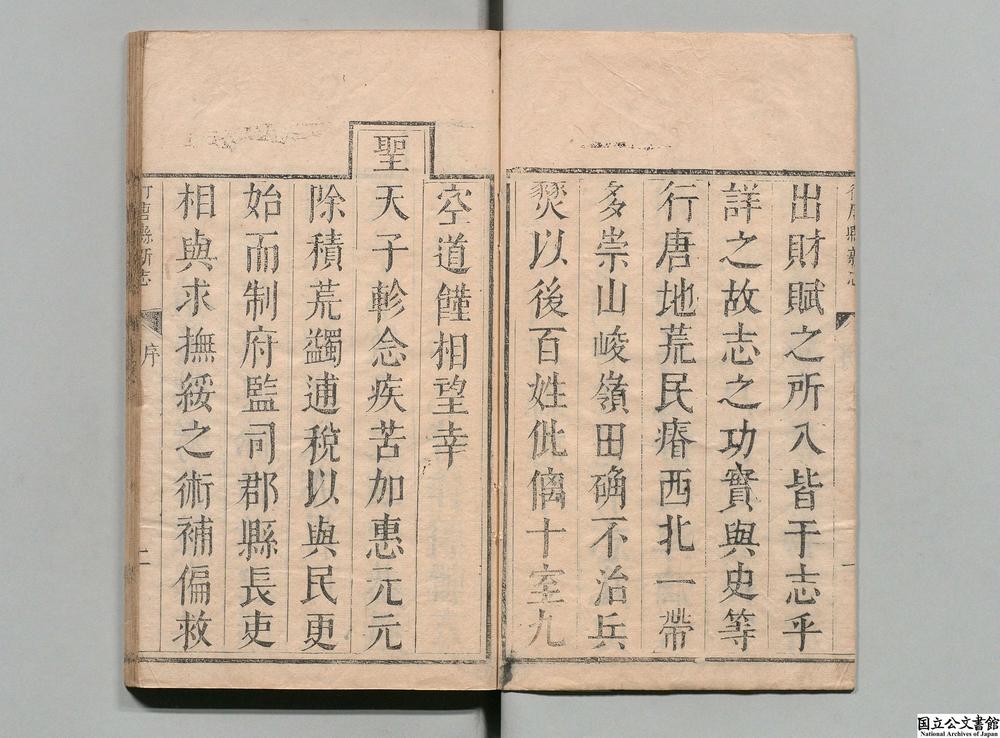 出財賦之所入皆于志乎
詳之故志之功實與史等
行唐地荒民瘠西北一帶
多崇山峻嶺田确不治兵
燹以後百姓仳㒧十室九
空道饉相望幸
聖天子軫念疾苦加惠元元
除積荒蠲逋稅以與民更
始而制府監司郡縣長吏
相與求撫綏之術補偏救
行唐縣新志
序
二
国立公文書館
National Archives of Japan